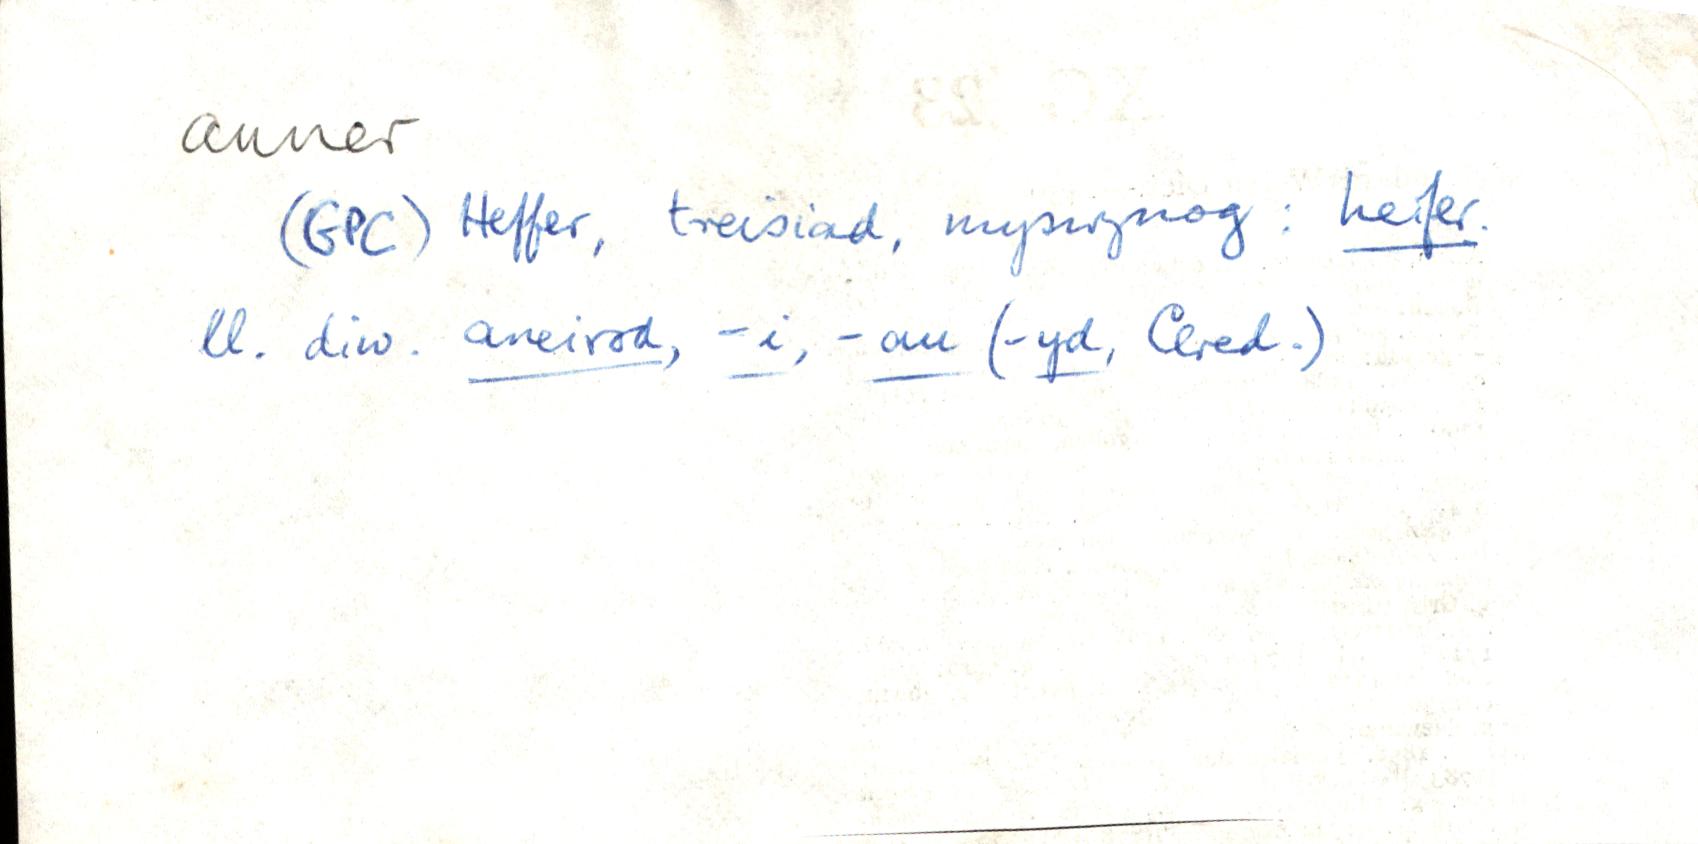 anner
(GPC) Heffer, treisiad, myswynog : heifer.
ll. diw. aneirod, -i, -au (-yd, Cered.)